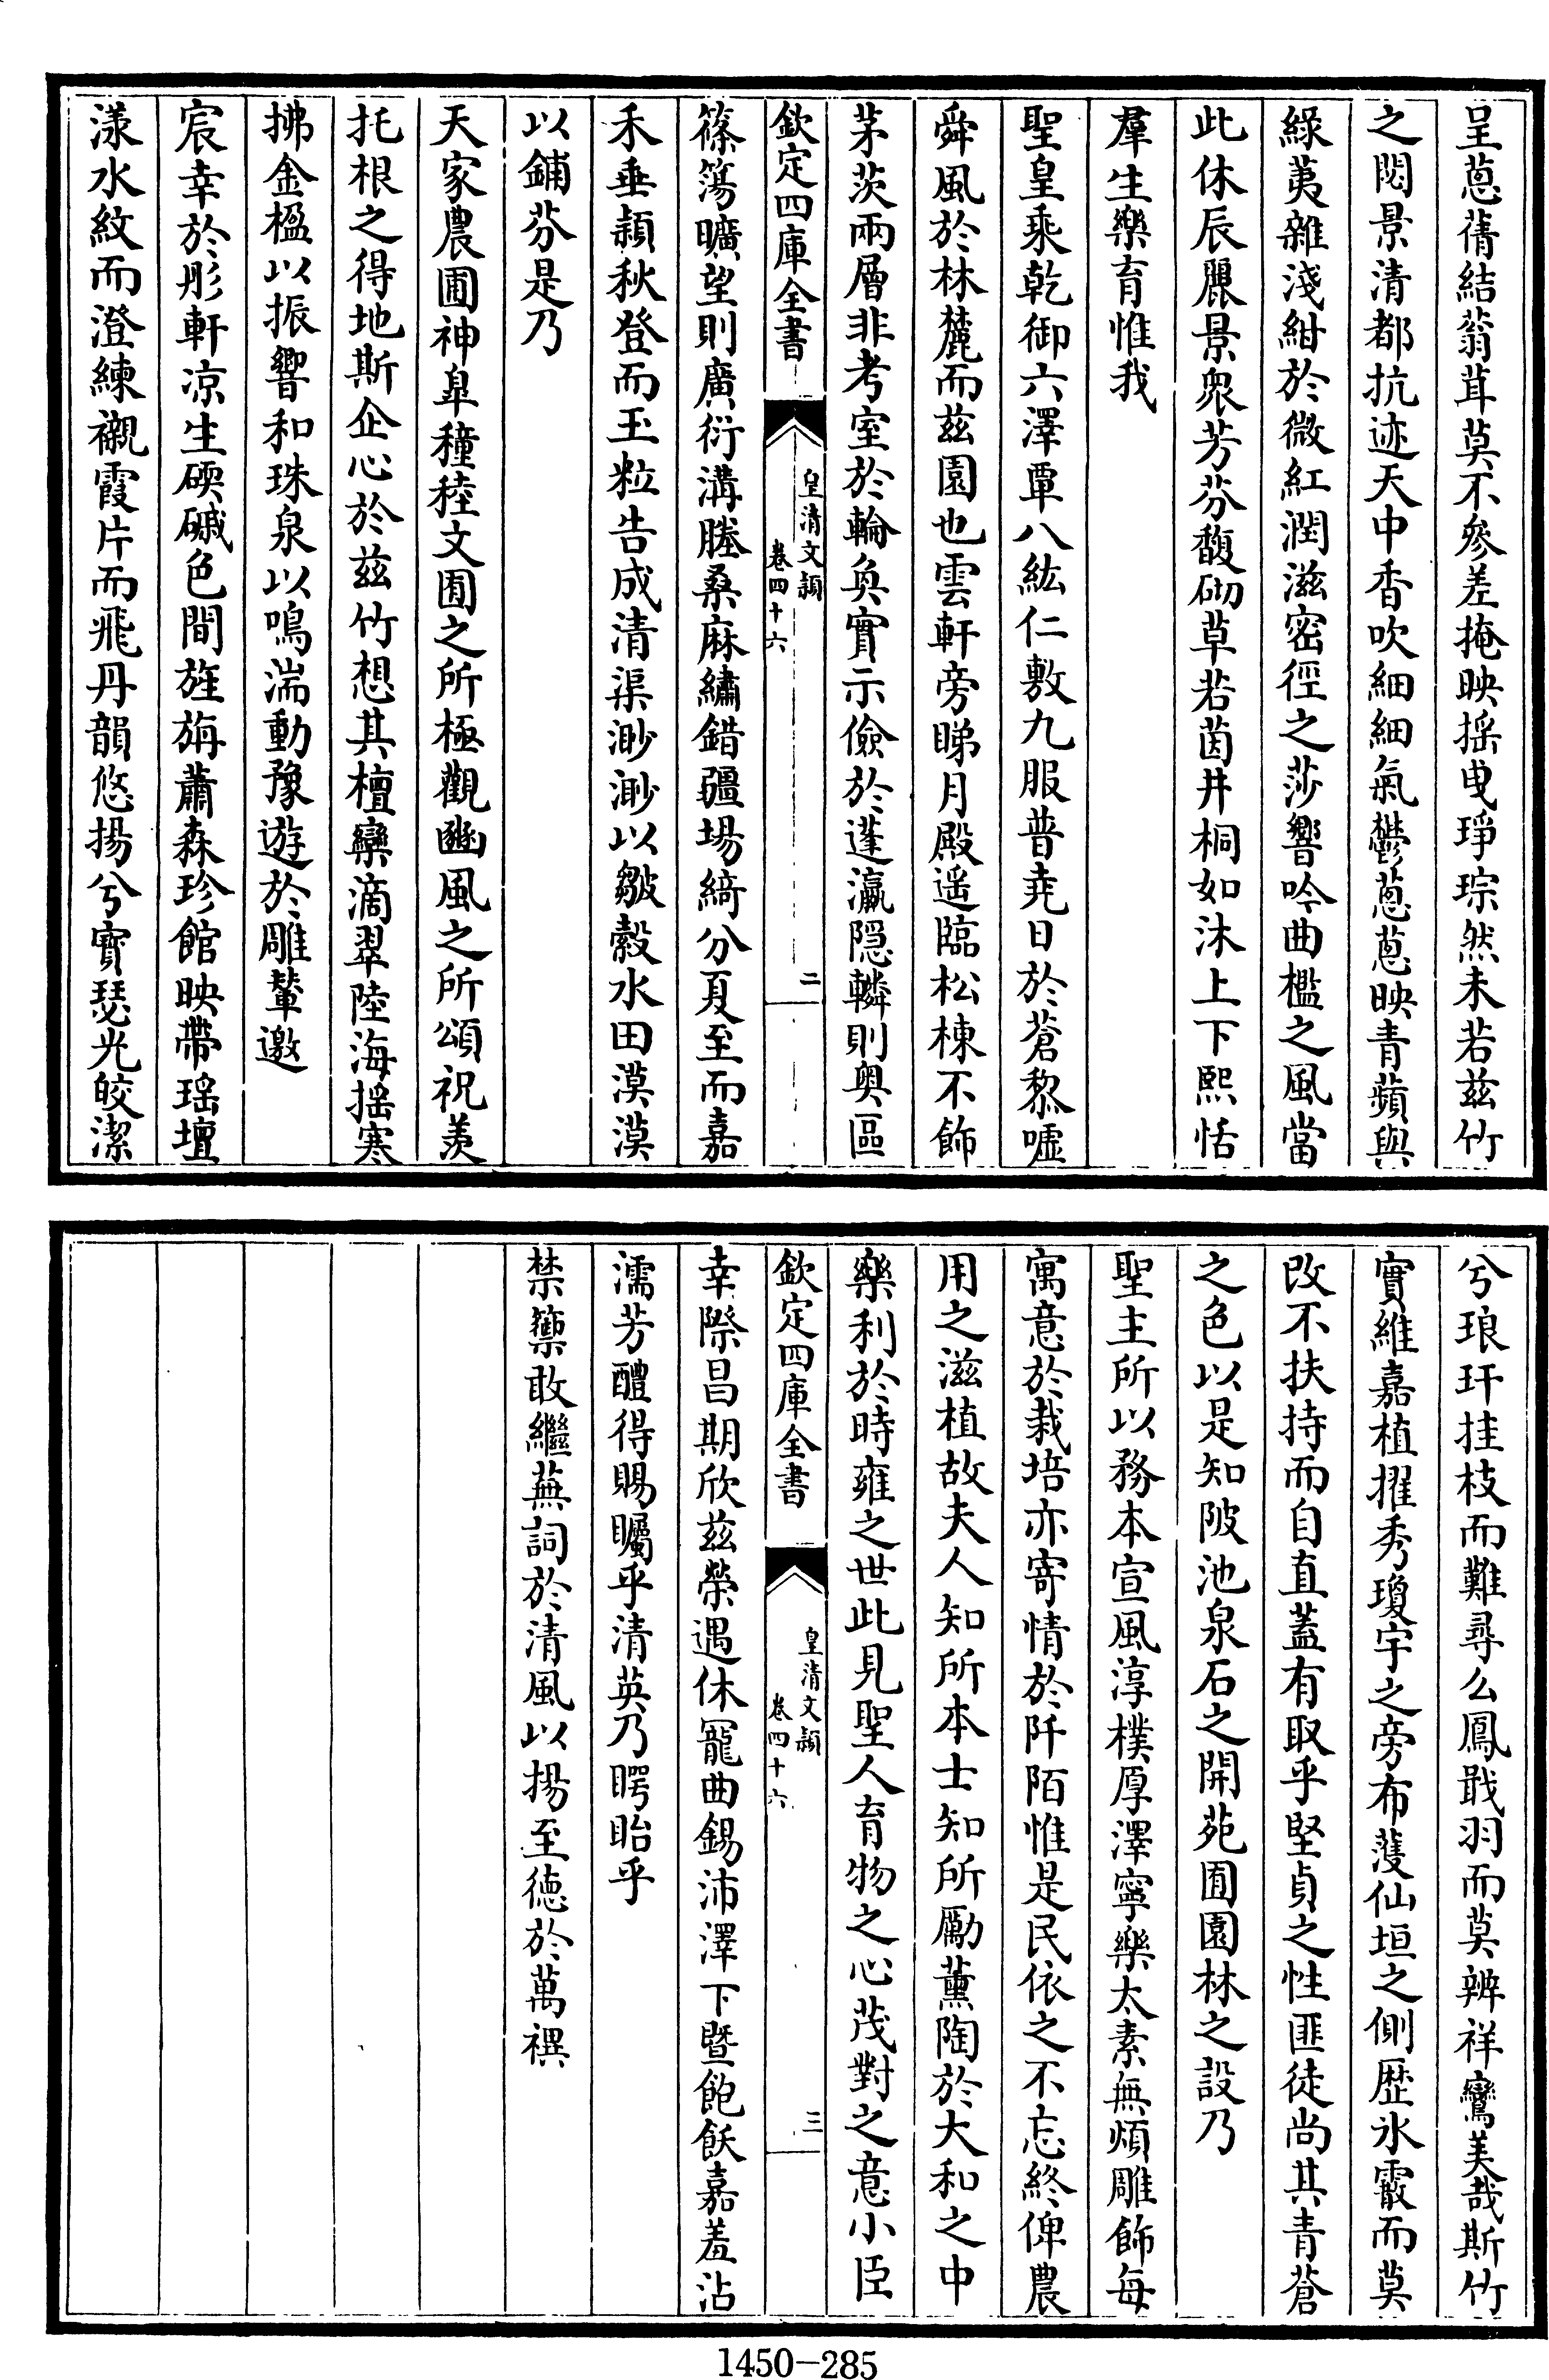 呈蔥蒨結蓊茸莫不參差掩映摇曳琤琮然未若兹竹
之閟景清都抗迹天中香吹細細氣鬱蔥蔥映青蘋與
綠荑雜淺紺於微紅潤滋密徑之莎響吟曲檻之風當
此休辰麗景衆芳芬馥砌草若茵井桐如沐上下熙恬
羣生樂育惟我
聖皇乘乾御六澤覃八紘仁敷九服普堯日於蒼黎噓
舜風於林麓而兹園也雲軒旁睇月殿遥臨松棟不飾
茅茨兩層非考室於輪奐實示儉於蓬瀛隠轔則奥區
欽定四庫全書
皇清文穎
卷四十六
二
篠簜曠望則廣衍溝塍桑麻繡錯疆場綺分夏至而嘉
禾垂穎秋登而玉粒告成清渠渺渺以皺縠水田漠漠
以鋪芬是乃
天家農圃神臯穜稑文囿之所極觀豳風之所頌祝羨
托根之得地斯企心於兹竹想其檀欒滴翠陸海摇寒
拂金楹以振響和珠泉以鳴湍動豫遊於雕輦邀
宸幸於彤軒凉生碝磩色間旌旃蕭森珍館映帶瑶壇
漾水紋而澄練襯霞片而飛丹韻悠揚兮寳瑟光皎潔
兮琅玕挂枝而難尋么鳳戢羽而莫辨祥鸞美哉斯竹
實維嘉植擢秀瓊宇之旁布濩仙垣之側歴氷霰而莫
改不扶持而自直蓋有取乎堅貞之性匪徒尚其青蒼
之色以是知陂池泉石之開苑囿園林之設乃
聖主所以務本宣風淳樸厚澤寧樂太素無煩雕飾每
寓意於栽培亦寄情於阡陌惟是民依之不忘終俾農
用之滋植故夫人知所本士知所勵薰陶於大和之中
樂利於時雍之世此見聖人育物之心茂對之意小臣
欽定四庫全書
皇清文穎
卷四十六
三
幸際昌期欣兹榮遇休寵曲錫沛澤下暨飽飫嘉羞沾
濡芳醴得賜矚乎清英乃睯眙乎
禁籞敢繼蕪詞於清風以揚至德於萬禩
1450-285